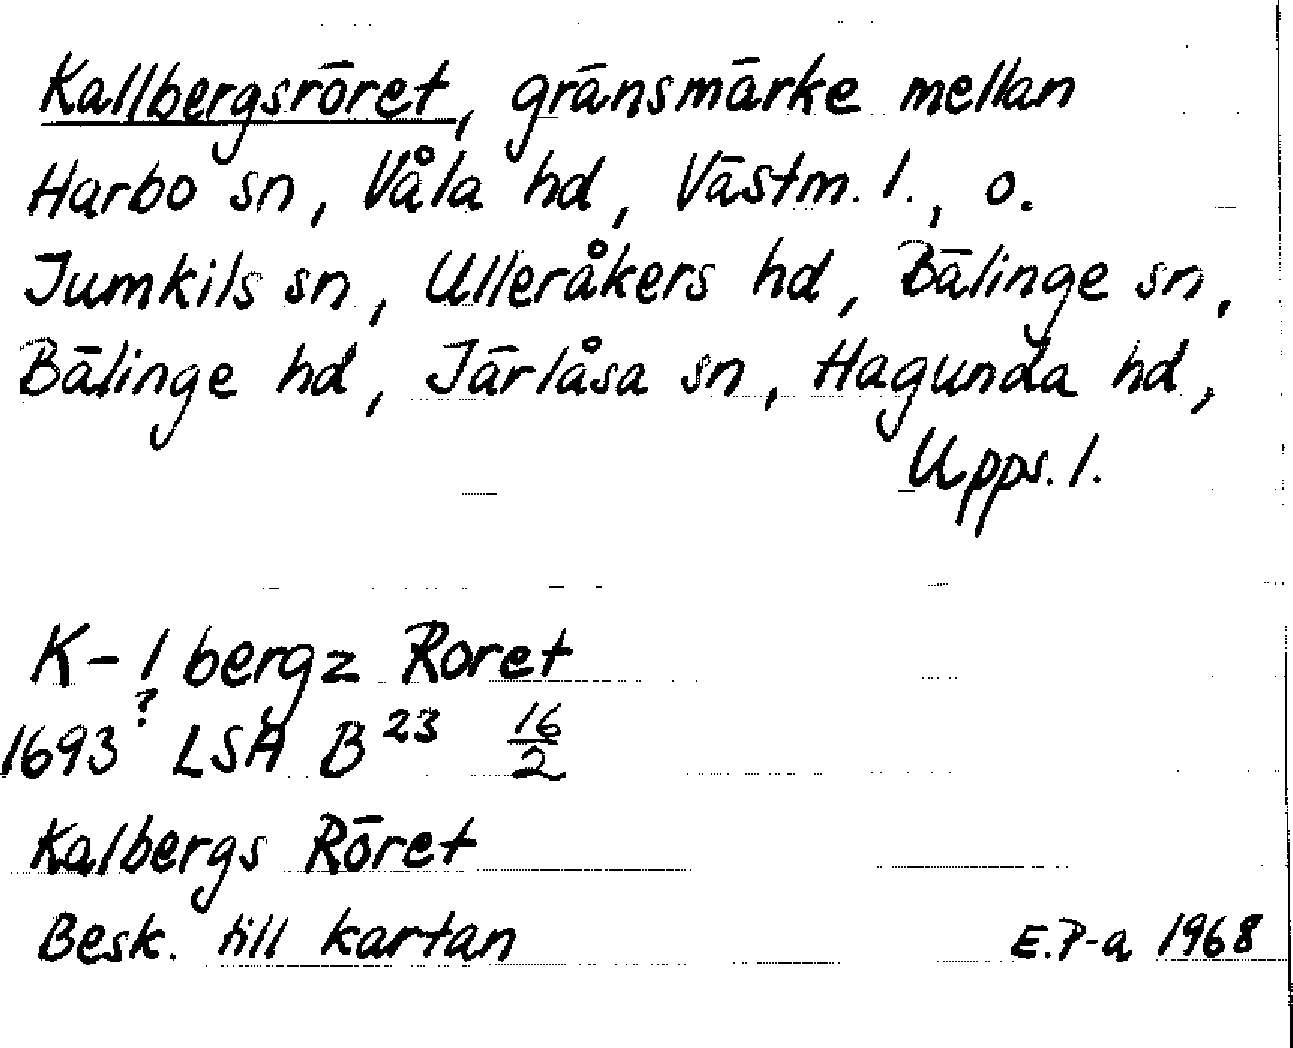 Kallbergsröret, gränsmärke mellan
Harbo sn, Våla hd, Västm. l., o.
Jumkils sn, Ulleråkers hd, Bälinge sn,
Bälinge hd, Järlåsa sn, Hagunda hd,
Upps. l.
K-l bergz Roret
?
1693 LSA B 23 16/2
Kalbergs Röret
Besk. till kartan E.P-a 1968